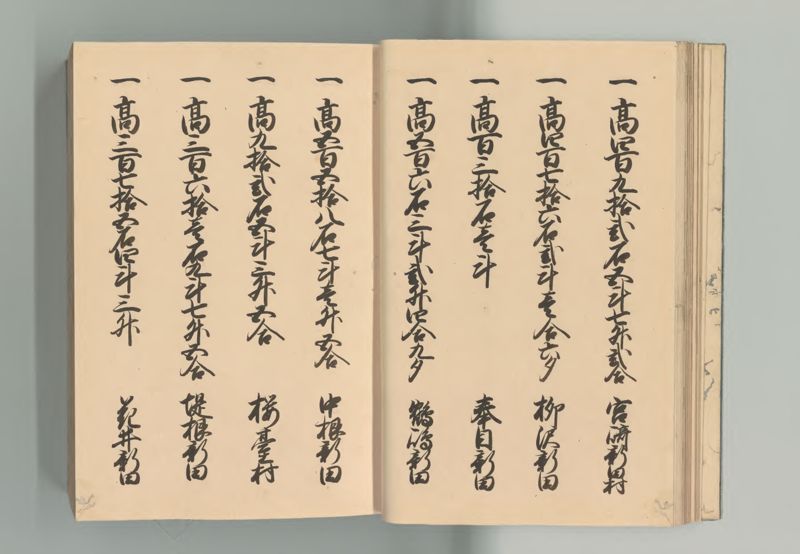 一高四百九拾弐石五斗七升弐合 宮崎新田村
一高四百七拾六石弐斗壱合六夕 柳沢新田
一高百三拾石壱斗 奉目新田
一高五百六石三斗弐升四合九夕 鶴嶋新田
一高五百五拾八石七斗壱升五合 中根新田
一高九拾弐石五斗三升五合 桜台村
一高三百六拾壱石九斗七升五合 堤根新田
一高三百七拾五石四斗三升 花井新田